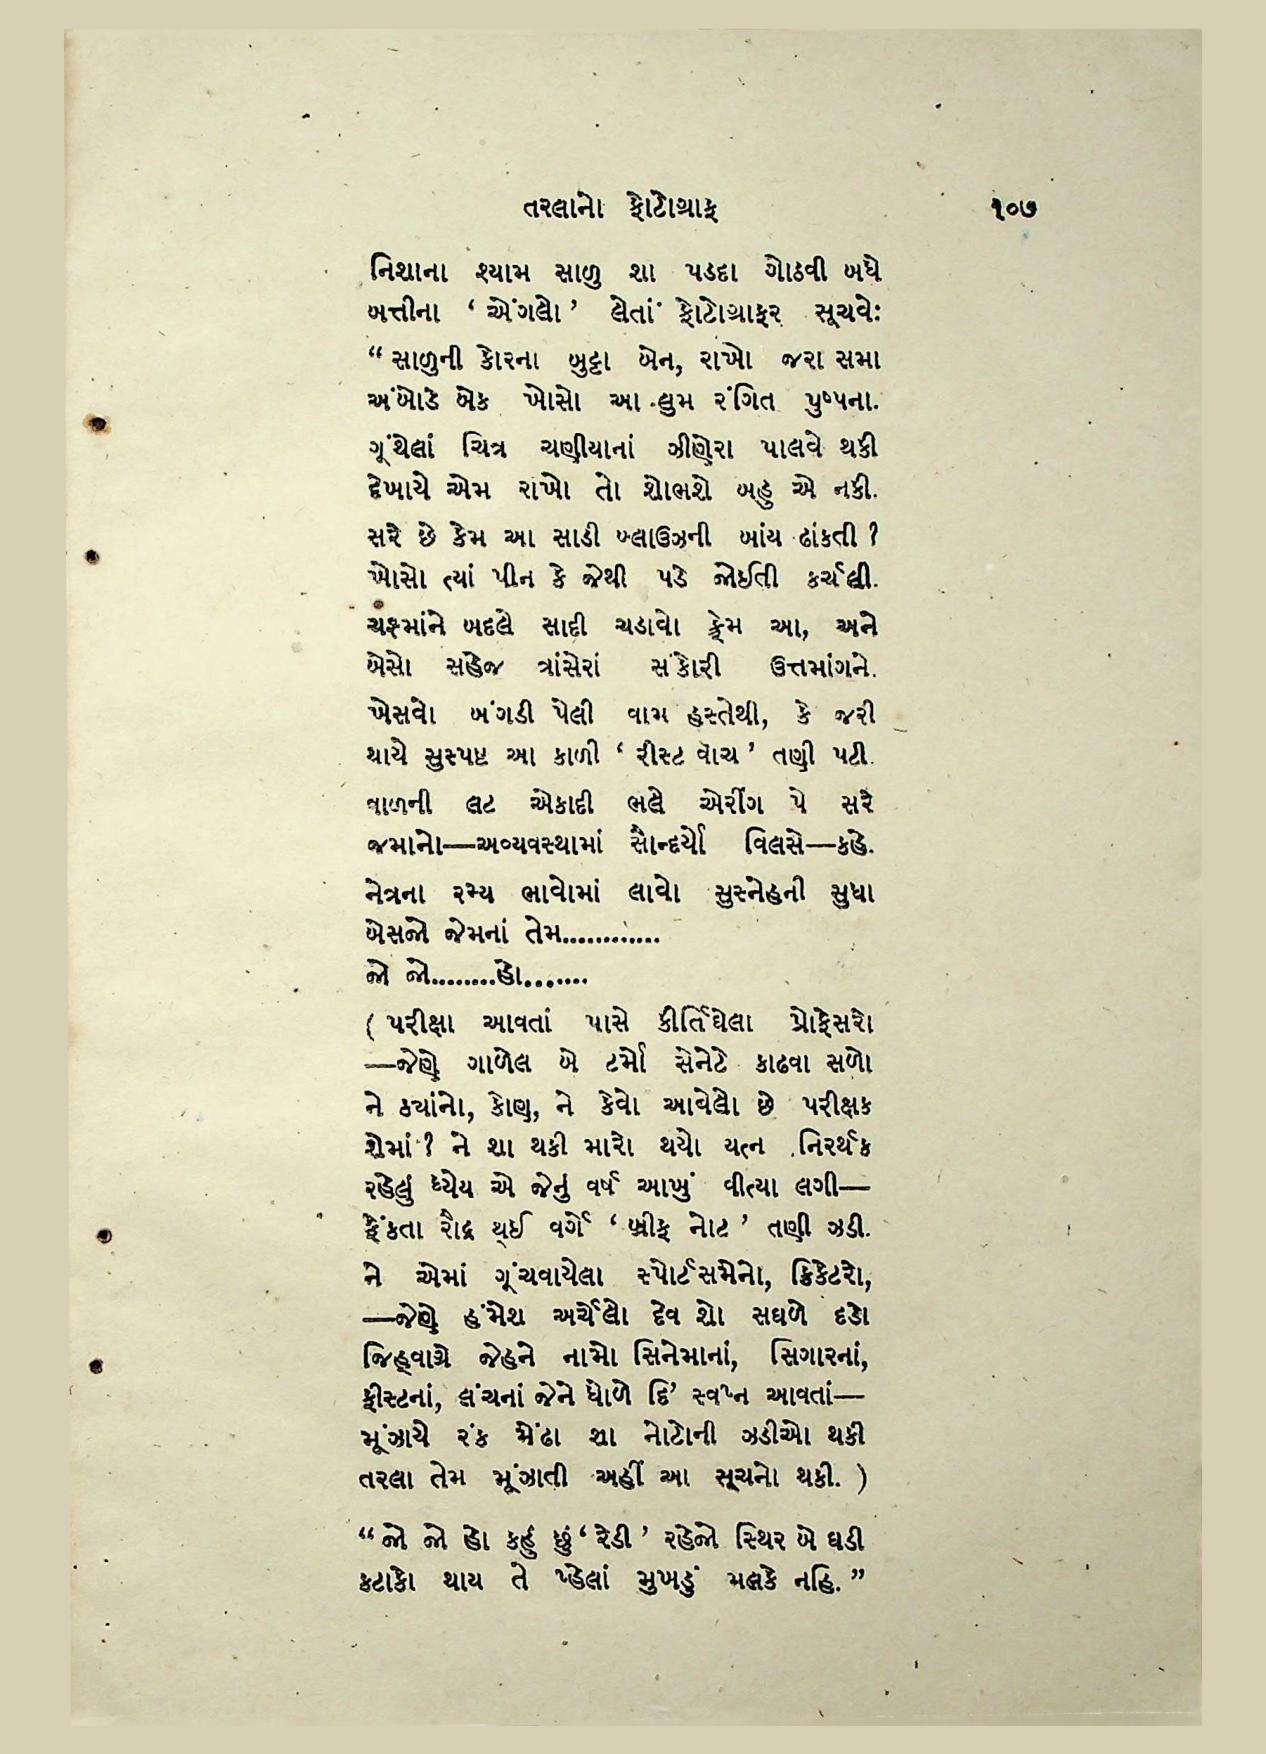 તરલાનો ફોટોગ્રાફ ૧૦૭
નિશાના શ્યામ સાળુ શા પડદા ગોઠવી બધે
બત્તીના ‘ એંગલો ’ લેતાં ફોટોગ્રાફર સૂચવે:
“ સાળુની કોરના બુટ્ટા બેન, રાખો જરા સમા
અંબોડે બેક ખોસો આ લુમ રંગિત પુષ્પના.
ગૂંથેલાં ચિત્ર ચણીયાનાં ઝીણેરા પાલવે થકી
દેખાયે એમ રાખો તો શોભશે બહુ એ નકી.
સરે છે કેમ આ સાડી બ્લાઉઝની બાંય ઢાંકતી ?
ખોસો ત્યાં પીન કે જેથી પડે જોઈતી કર્ચલી.
ચશ્માંને બદલે સાદી ચડાવો ફ્રેમ આ, અને
બેસો સહેજ ત્રાંસેરાં સંકોરી ઉત્તમાંગને.
ખેસવો બંગડી પેલી વામ હસ્તેથી, કે જરી
થાયે સુસ્પષ્ટ આ કાળી ‘ રીસ્ટ વૉચ ’ તણી પટી.
વાળની લટ એકાદી ભલે એરીંગ પે સરે
જમાનો—અવ્યવસ્થામાં સૌન્દર્યો વિલસે—કહે.
નેત્રના રમ્ય ભાવોમાં લાવો સુસ્નેહની સુધા
બેસજો જેમનાં તેમ............
જો જો........હો.......
( પરીક્ષા આવતાં પાસે કીર્તિઘેલા પ્રોફેસરો
—જેણે ગાળેલ બે ટર્મો સેનેટે કાઢવા સળો
ને ક્યાંનો, કોણ, ને કેવો આવેલો છે પરીક્ષક
શેમાં ? ને શા થકી મારો થયો યત્ન નિરર્થક
રહેલું ધ્યેય એ જેનું વર્ષ આખું વીત્યા લગી—
ફેંકતા રૌદ્ર થઈ વર્ગે ‘ બ્રીફ નોટ ’ તણી ઝડી.
ને એમાં ગૂંચવાયેલા સ્પોર્ટસમેનો, ક્રિકેટરો,
—જેણે હંમેશ અર્ચેલો દેવ શો સઘળે દડો
જિહ્વાગ્રે જેહને નામો સિનેમાનાં, સિગારનાં,
ફીસ્ટનાં, લંચનાં જેને ધોળે દિ’ સ્વપ્ન આવતાં—
મૂંઝાયે રંક મેંઢા શા નોટોની ઝડીઓ થકી
તરલા તેમ મૂંઝાતી અહીં આ સૂચનો થકી. )
“ જો જો હો કહું છું ‘ રેડી ’ રહેજો સ્થિર બે ઘડી
કટાકો થાય તે પ્હેલાં મુખડું મલકે નહિ. ”